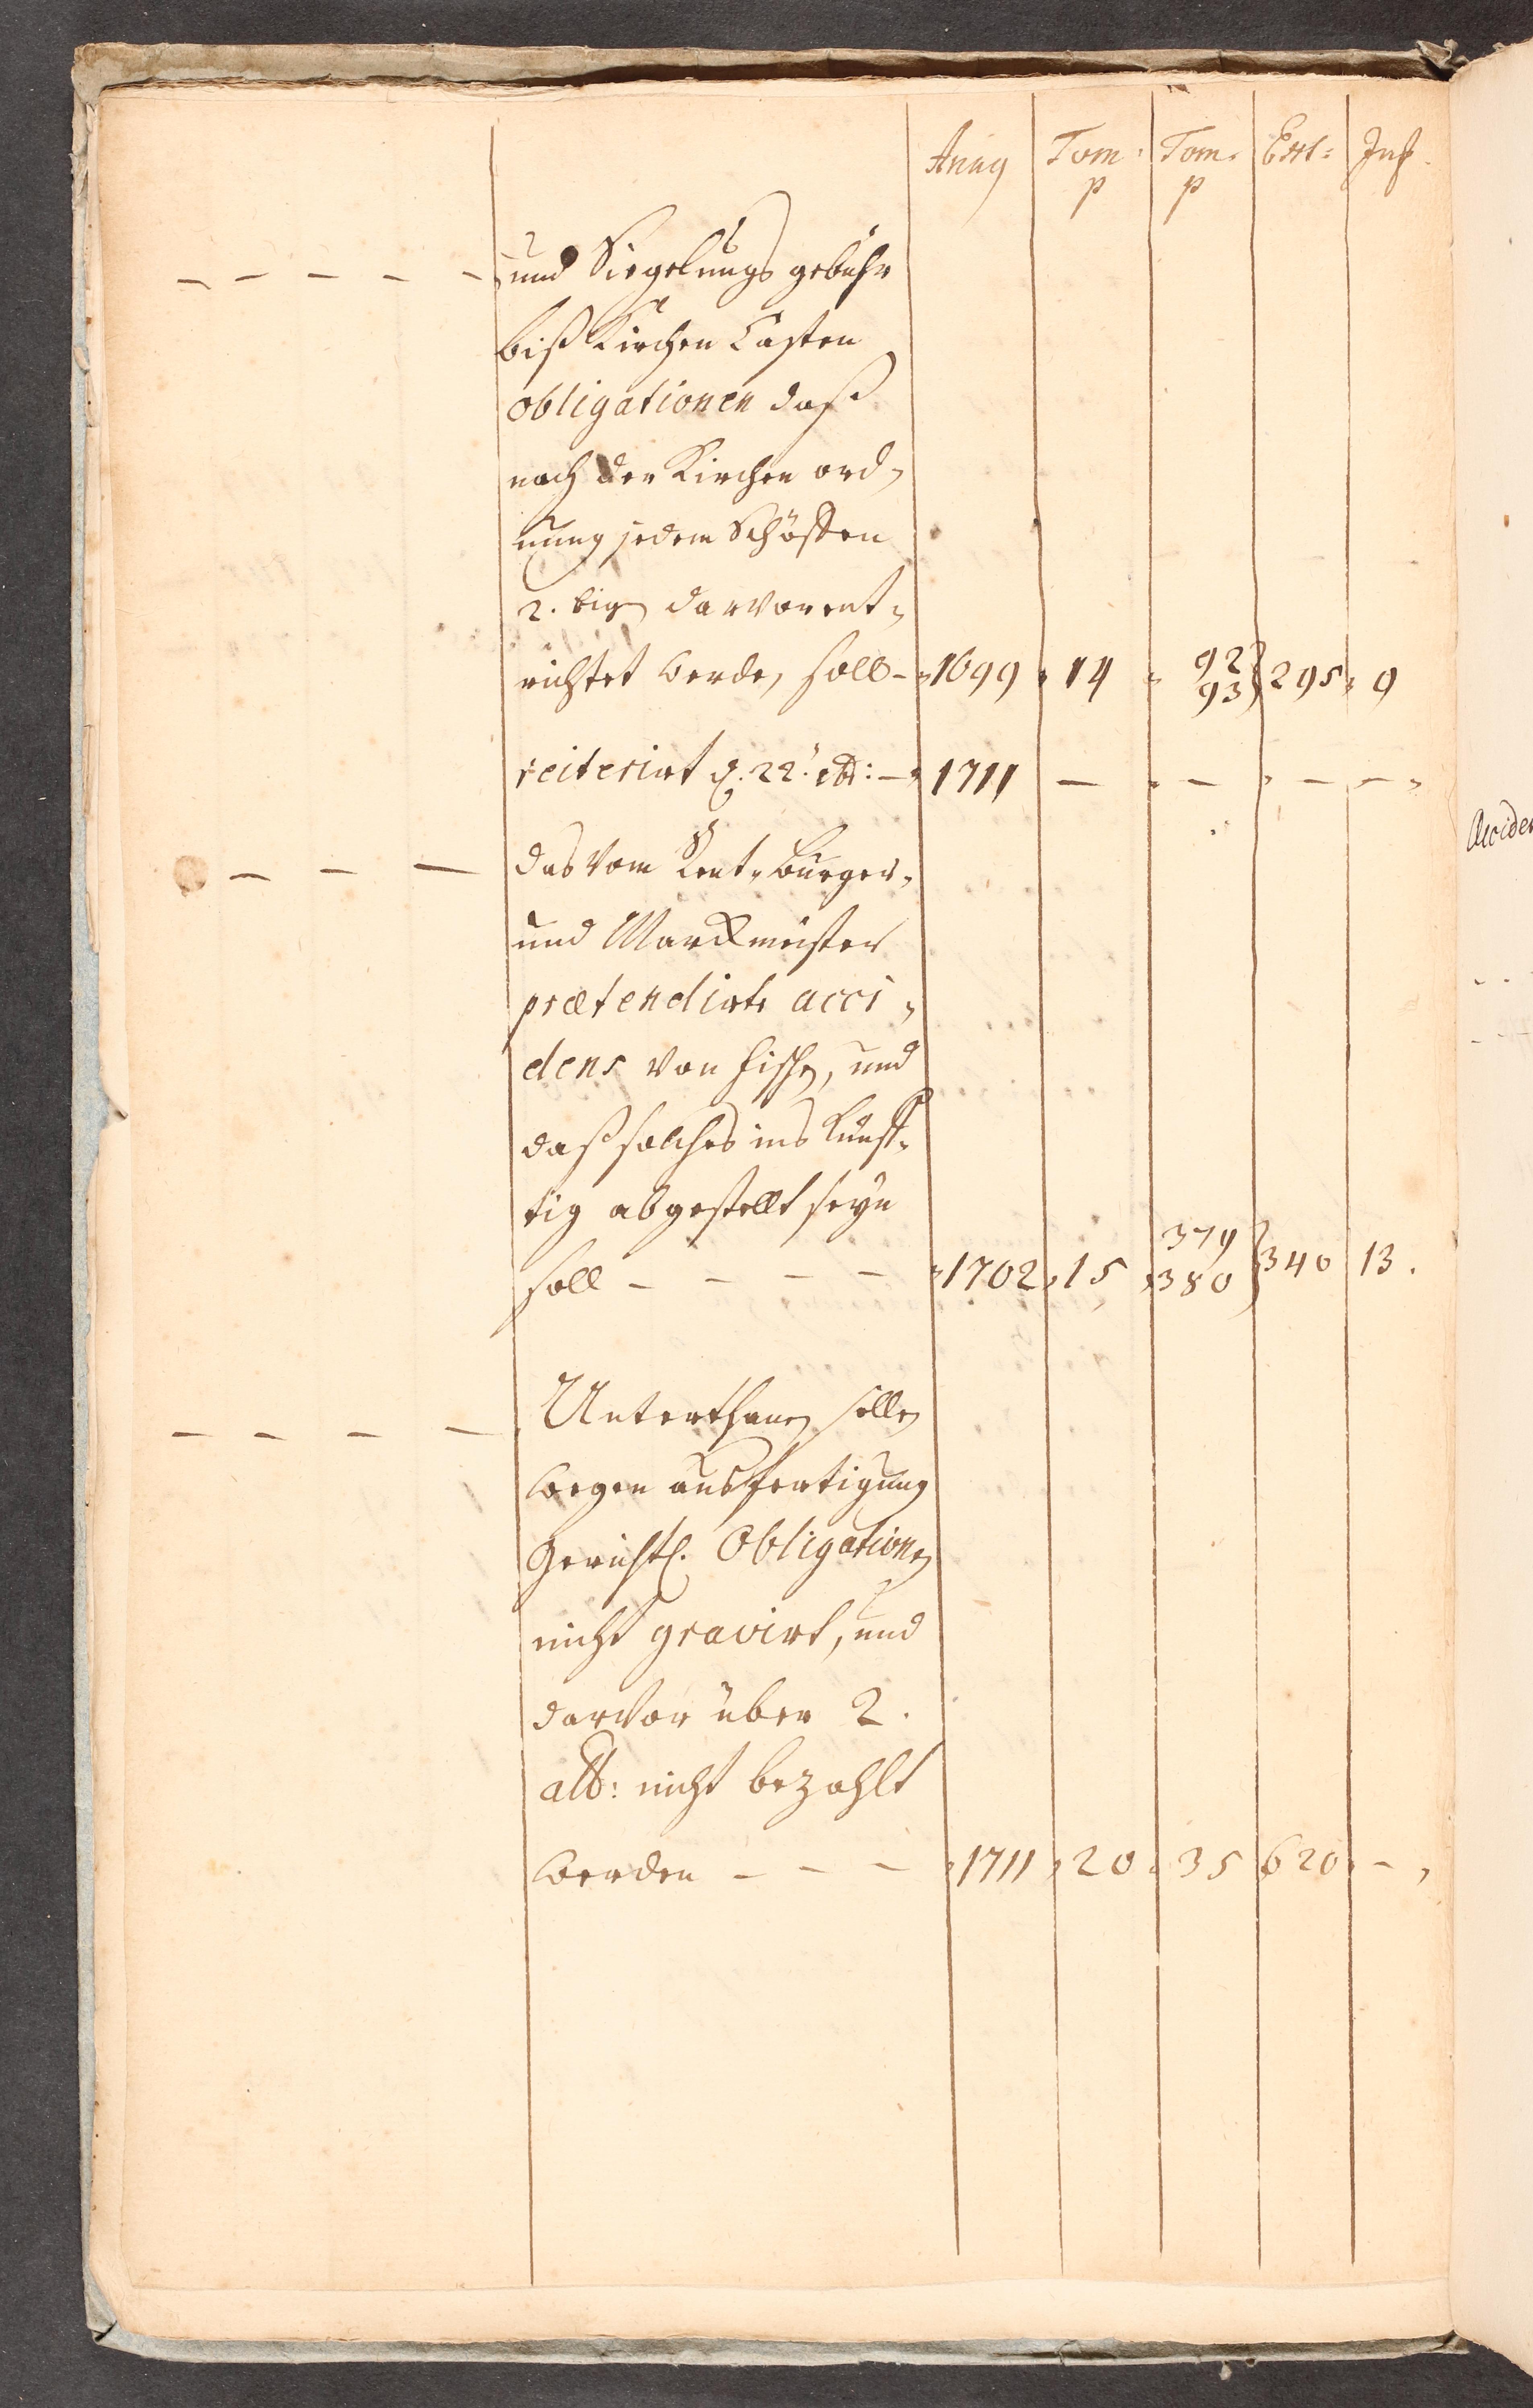 Anno Tom. p Tom. p Ext: Inh.
- - - - - und Siegelungs gebühr
biß Kirchen Casten
obligationen daß
nach der Kirchen ord,
nung jedem Schöffen
2. darvor ent,
richtet werde, soll - 1699 14 92 93 } 295 9
reiterirt d. 22. : - 1711 - - - -
- - - das vom Rent, Bürger,
und Marckmeister
prætendirte acci,
dens von Fische, und
daß solches ins künff,
tig abgestellt seyn
soll - - - - 1702 15 379 380 } 340 13.
- - - - Unterthanen sollen
wegen außfertigung
Gerichtl. Obligationen
nicht gravirt, und
darvor über 2.
alb: nicht bezahlt
werden - - - 1711 20 35 620 -
Acciden